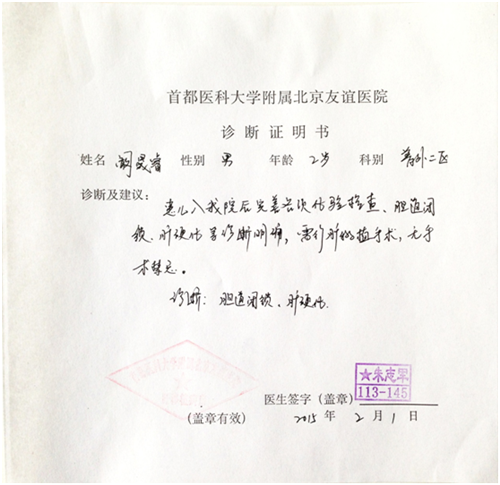 首都医科大学附属北京友谊医院
诊断证明书
姓名 阚昊睿 性别 男 年龄 2岁 科别 普外二区
诊断及建议：
患儿入我院后完善各项化验检查、胆道闭
锁、肝硬化 诊断明确，需行肝移植手术，无手
术禁忌。
诊断：胆道闭锁、肝硬化
☆朱志军
113-145
医生签字（盖章）
(盖章有效) 2015 年 2 月 1 日